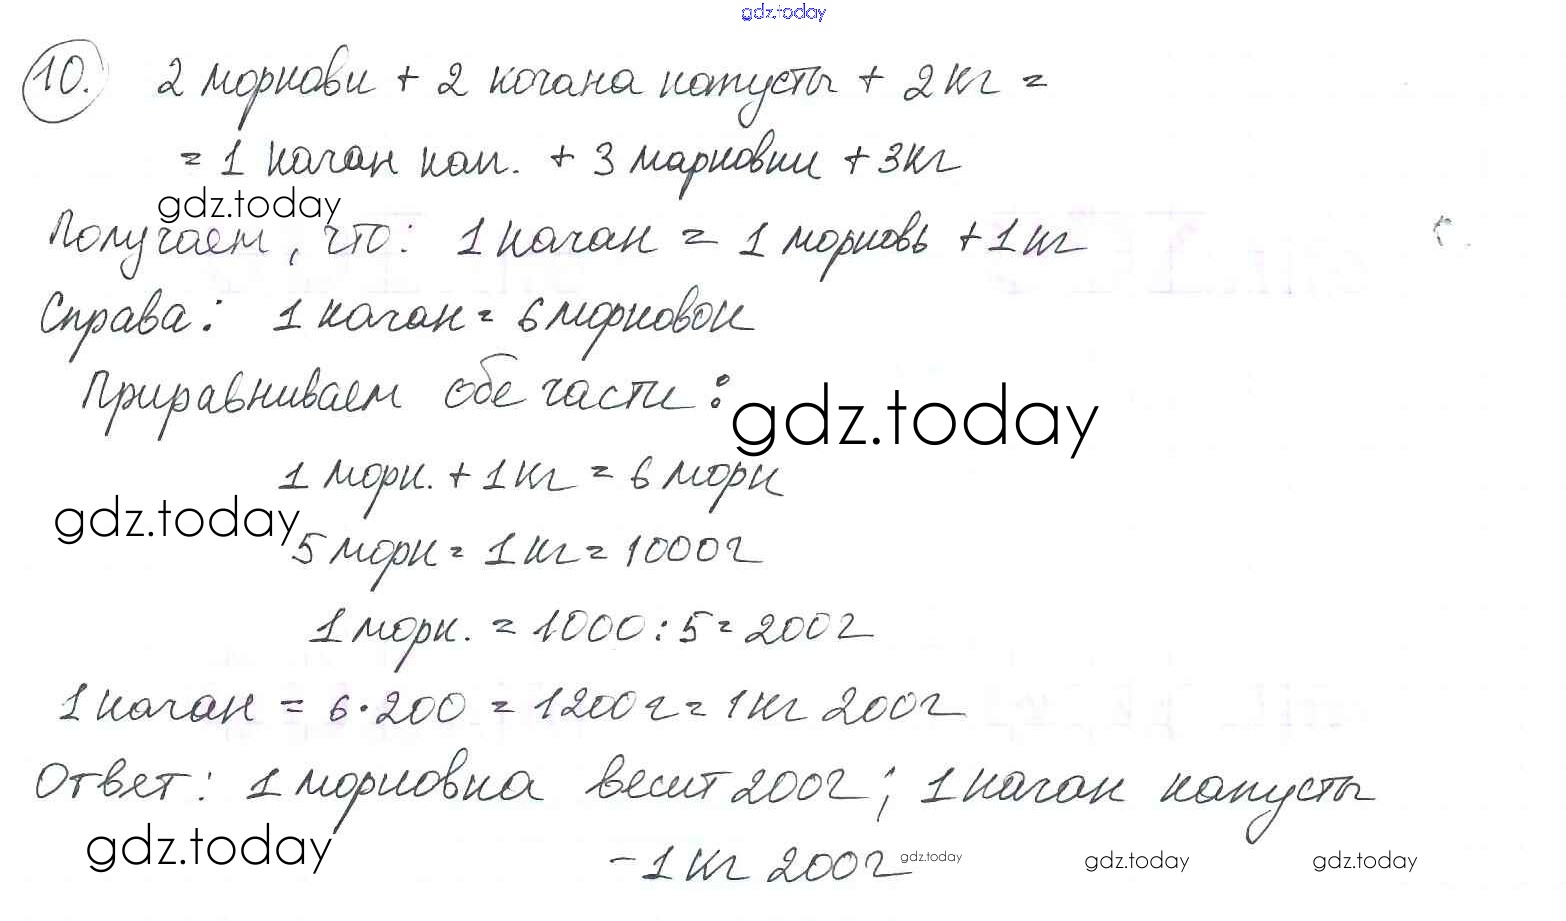 gdz.today
10. 2 моркови + 2 кочана капусты + 2 кг =
= 1 качан кап. + 3 марковки + 3кг
gdz.today
Получаем, что: 1 качан = 1 морковь + 1 кг
Справа: 1 качан = 6 морковок
Приравниваем обе части:
gdz.today
1 морк. + 1 кг = 6 морк
gdz.today
5 морк = 1 кг = 1000г
1 морк. = 1000 : 5 = 200г
1 качан = 6 · 200 = 1200г = 1кг 200г
Ответ: 1 морковка весит 200г; 1 качан капусты
gdz.today
- 1 кг 200г gdz.today gdz.today gdz.today